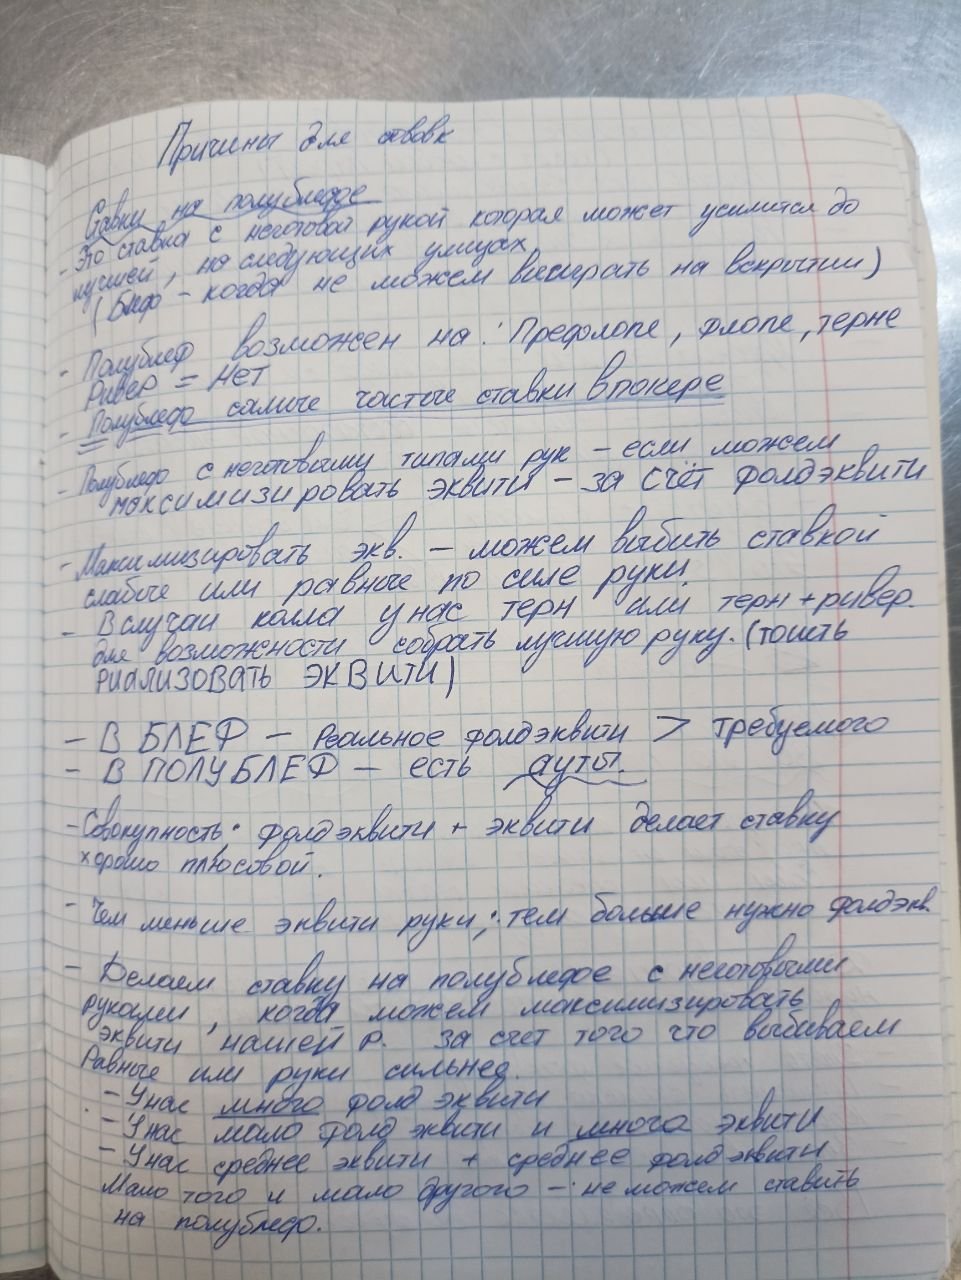 Причины для ставок
Ставки на полублефе
- Это ставка с неготовой рукой которая может усилится до
лучшей, на следующих улицах.
(Блеф - когда не можем выиграть на вскрытии)
- Полублеф возможен на: Префлопе, флопе, терне
Ривер = НЕТ
- Полублеф самые частые ставки в покере
- Полублеф с неготовыми типами рук - если можем
максимизировать эквити - за счёт фолдэквити
- Максимизировать экв. - можем выбить ставкой
слабые или равные по силе руки.
- В случаи колла у нас терн или терн + ривер.
для возможности собрать лучшую руку. (тоисть
риализовать эквити)
- В БЛЕФ - Реальное фолдэквити > требуемого
- В ПОЛУБЛЕФ - есть ауты.
- Совокупность: фолдэквити + эквити делает ставку
хорошо плюсовой.
- Чем меньше эквити руки; тем больше нужно фолдэкв.
- Делаем ставку на полублефе с неготовыми
руками, когда можем максимизировать
эквити нашей р. за счет того что выбиваем
Равные или руки сильнее.
- У нас много фолд эквити
- У нас мало фолд эквити и много эквити
- У нас среднее эквити + среднее фолдэквити
Мало того и мало другого - не можем ставить
на полублеф.